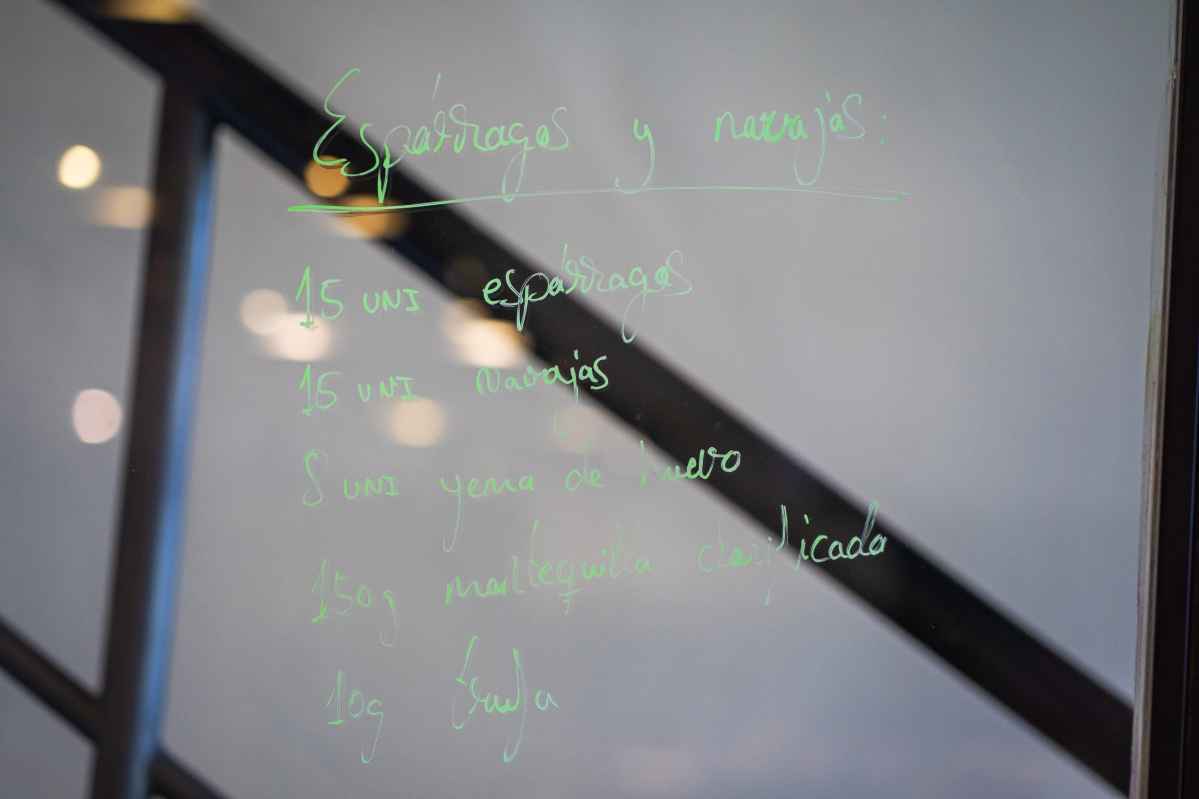 Espárragos y navajas:
15 UNI espárragos
15 UNI Navajas
5 UNI yema de huevo
150g mantequilla clarificada
10g trufa